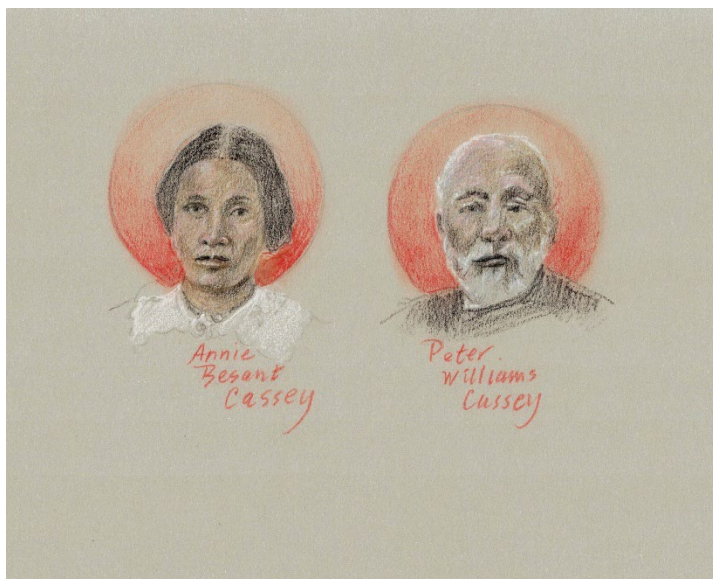 Annie
Besant
Cassey
Peter
Williams
Cassey